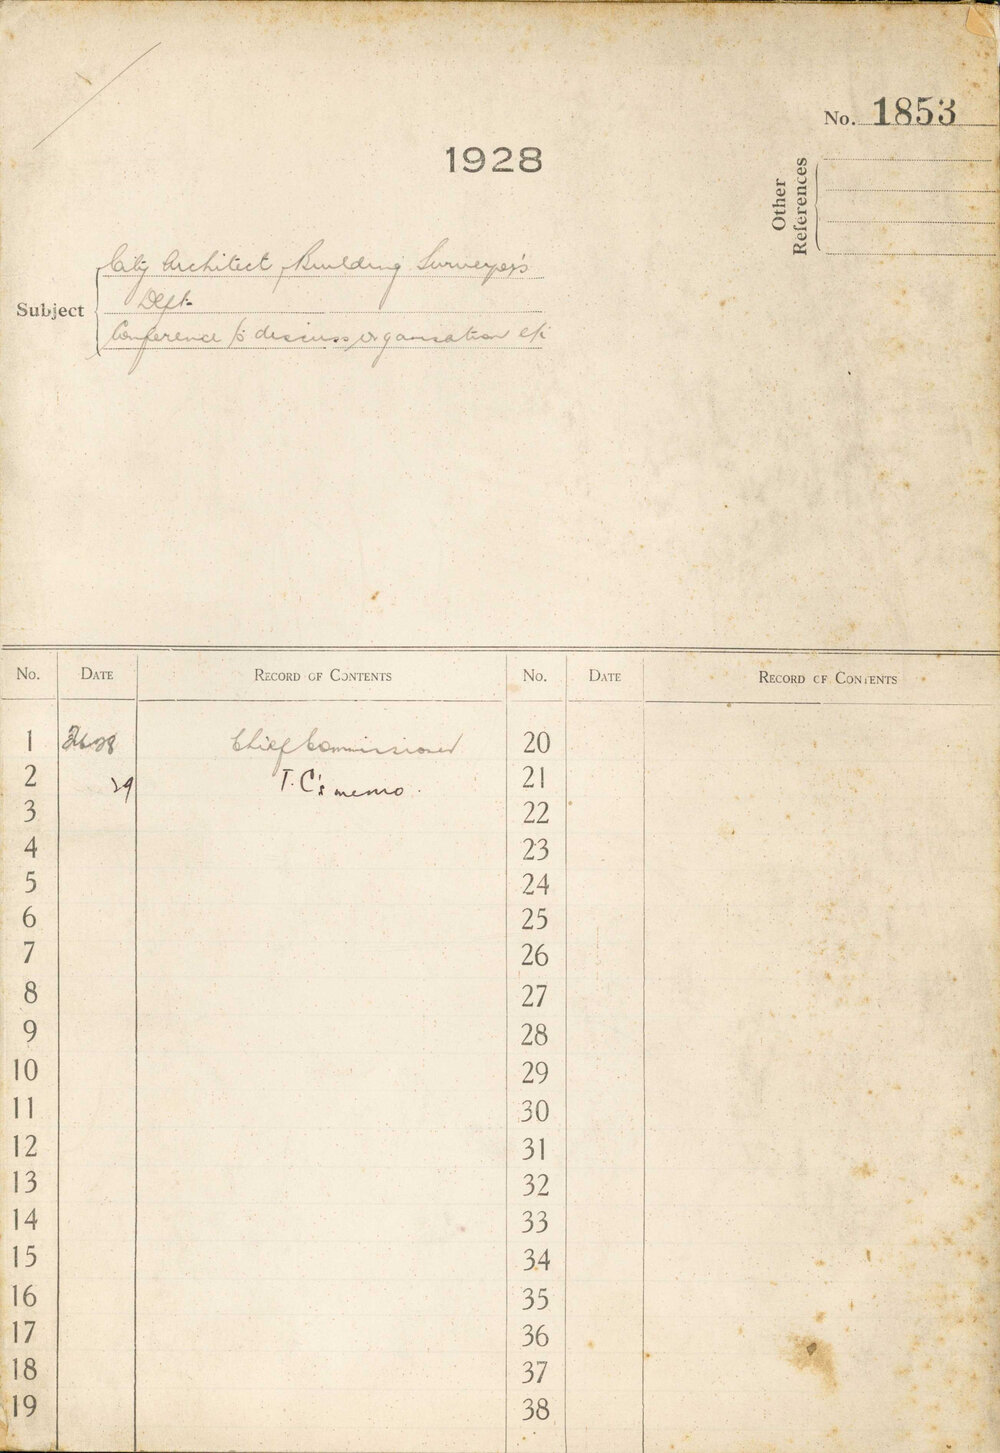 No. 1853
1928
Other
References
Subject
City Architect, Building Surveyor's
Dept.
Conference to discuss organisation etc
No. DATE RECORD OF CONTENTS No. DATE RECORD OF CONTENTS
1 Chief Commissioner 20
2 29 T.C's memo. 21
3 22
4 23
5 24
6 25
7 26
8 27
9 28
10 29
11 30
12 31
13 32
14 33
15 34
16 35
17 36
18 37
19 38